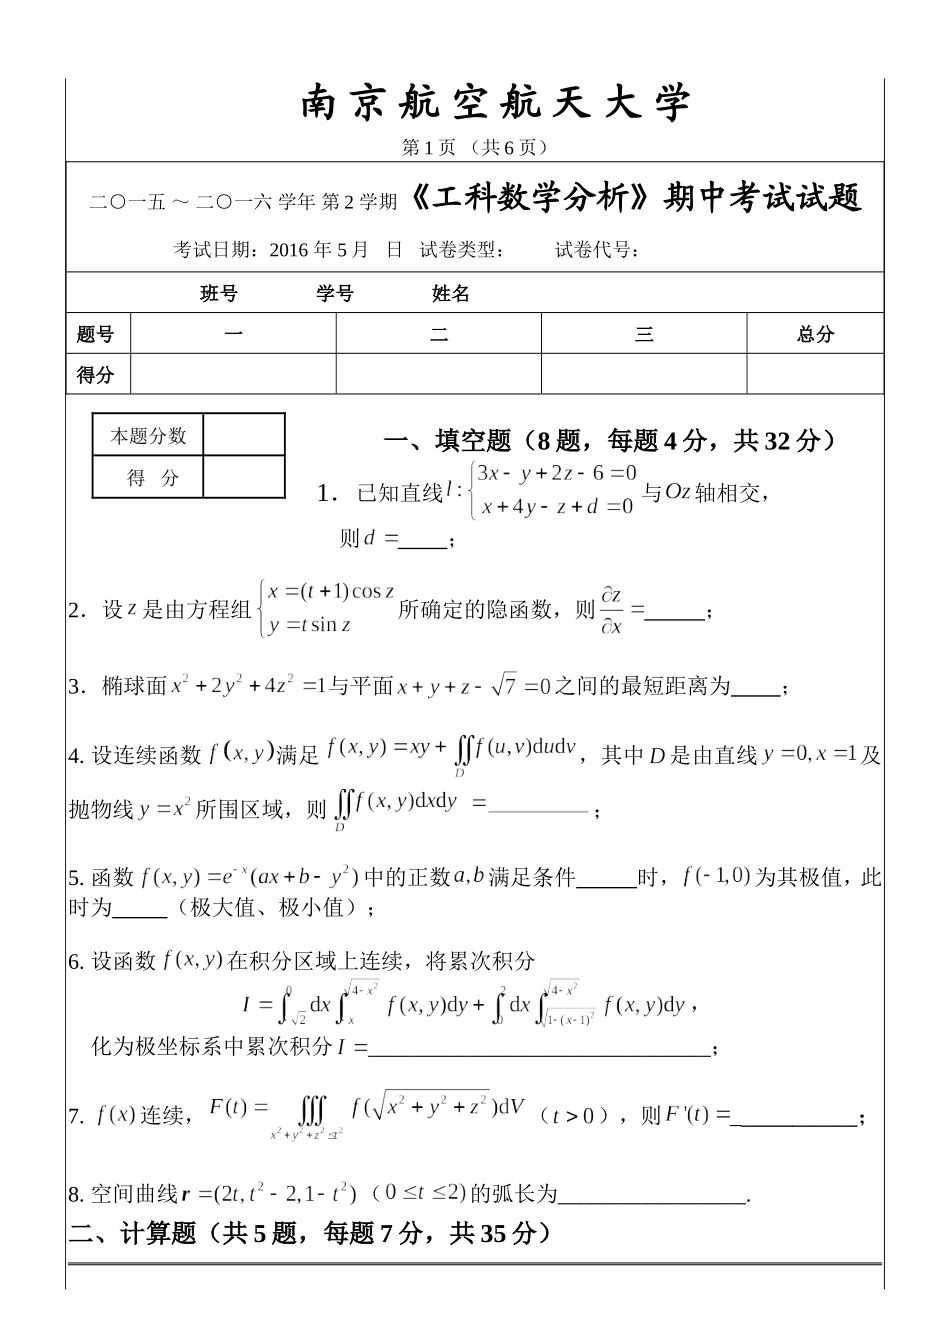 南京航空航天大学
第1页 （共6页）
二〇一五 ～ 二〇一六 学年 第2学期《工科数学分析》期中考试试题
考试日期：2016年5月 日 试卷类型： 试卷代号：
班号 学号 姓名
题号 一 二 三 总分
得分
本题分数
得 分
一、填空题（8题，每题4分，共32分）
1．已知直线 l : { 3x − y + 2z − 6 = 0 ; x + 4y − z + d = 0 与Oz轴相交，
则 d = ____；
2．设 z 是由方程组 { x = (t+1)cos z ; y = t sin z 所确定的隐函数，则 ∂z/∂x = _____；
3．椭球面 x² + 2y² + 4z² = 1与平面 x + y + z − √7 = 0之间的最短距离为____；
4. 设连续函数 f(x,y)满足 f(x,y) = xy + ∬_D f(u,v)dudv，其中 D 是由直线 y = 0, x = 1及
抛物线 y = x² 所围区域，则 ∬_D f(x,y)dxdy = __________；
5. 函数 f(x,y) = e^{−x}(ax + b − y²) 中的正数 a,b 满足条件_____时，f(−1,0) 为其极值，此
时为____（极大值、极小值）；
6. 设函数 f(x,y) 在积分区域上连续，将累次积分
I = ∫_{−√2}^{0} dx ∫_{−x}^{√(4−x²)} f(x,y)dy + ∫_{0}^{2} dx ∫_{√(1−(x−1)²)}^{√(4−x²)} f(x,y)dy，
化为极坐标系中累次积分 I = ______________________________；
7. f(x) 连续，F(t) = ∭_{x²+y²+z²≤t²} f(√(x²+y²+z²))dV （t > 0），则F'(t) = ___________；
8. 空间曲线 r = (2t, t² − 2, 1 − t²)（0 ≤ t ≤ 2)的弧长为_________________.
二、计算题（共5题，每题7分，共35分）